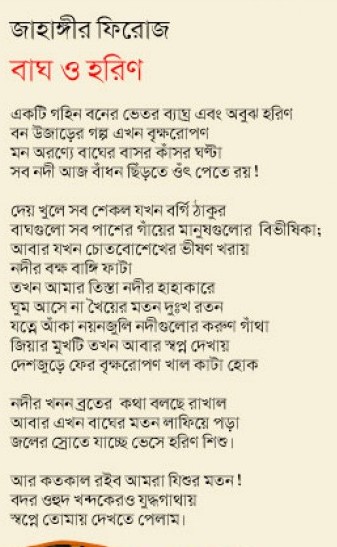 জাহাঙ্গীর ফিরোজ
বাঘ ও হরিণ
একটি গহিন বনের ভেতর ব্যাঘ্র এবং অবুঝ হরিণ
বন উজাড়ের গল্প এখন বৃক্ষরোপণ
মন অরণ্যে বাঘের বাসর কাঁসর ঘণ্টা
সব নদী আজ বাঁধন ছিঁড়তে ওঁৎ পেতে রয়!
দেয় খুলে সব শেকল যখন বর্গি ঠাকুর
বাঘগুলো সব পাশের গাঁয়ের মানুষগুলোর বিভীষিকা;
আবার যখন চোতবোশেখের ভীষণ খরায়
নদীর বক্ষ বাঙ্গি ফাটা
তখন আমার তিস্তা নদীর হাহাকারে
ঘুম আসে না খৈয়ের মতন দুঃখ রতন
যত্নে আঁকা নয়নজুলি নদীগুলোর করুণ গাঁথা
জিয়ার মুখটি তখন আবার স্বপ্ন দেখায়
দেশজুড়ে ফের বৃক্ষরোপণ খাল কাটা হোক
নদীর খনন ব্রতের কথা বলছে রাখাল
আবার এখন বাঘের মতন লাফিয়ে পড়া
জলের স্রোতে যাচ্ছে ভেসে হরিণ শিশু।
আর কতকাল রইব আমরা যিশুর মতন!
বদর ওহুদ খন্দকেরও যুদ্ধগাথায়
স্বপ্নে তোমায় দেখতে পেলাম।